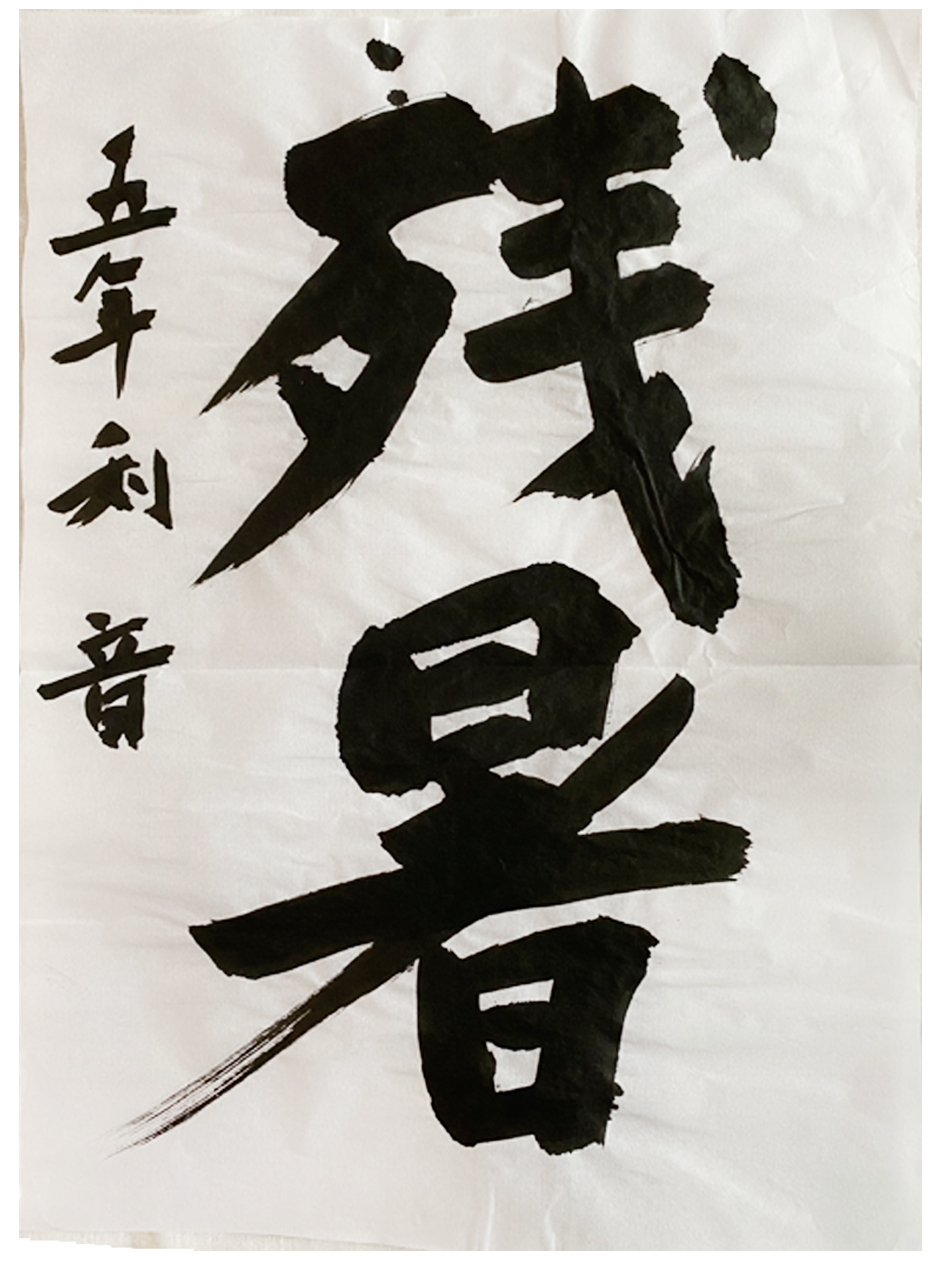 残暑
五年 利音